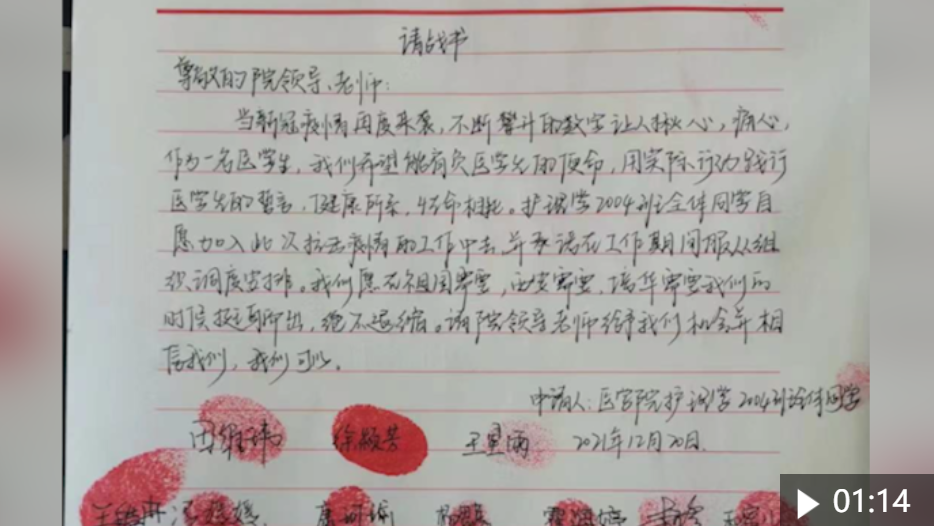 请战书
尊敬的院领导、老师：
当新冠疫情再度来袭，不断攀升的数字让人揪心，痛心，
作为一名医学生，我们希望能肩负医学生的使命，用实际行动践行
医学生的誓言，健康所系，性命相托。护理学2004班全体同学自
愿加入此次抗击疫情的工作中去，并承诺在工作期间服从组
织调度安排。我们愿在祖国需要，西安需要，培华需要我们的
时候挺身而出，绝不退缩。请院领导老师给予我们机会并相
信我们，我们可以。
申请人：医学院护理学2004班全体同学
徐颖芳 2021年12月20日.
01:14